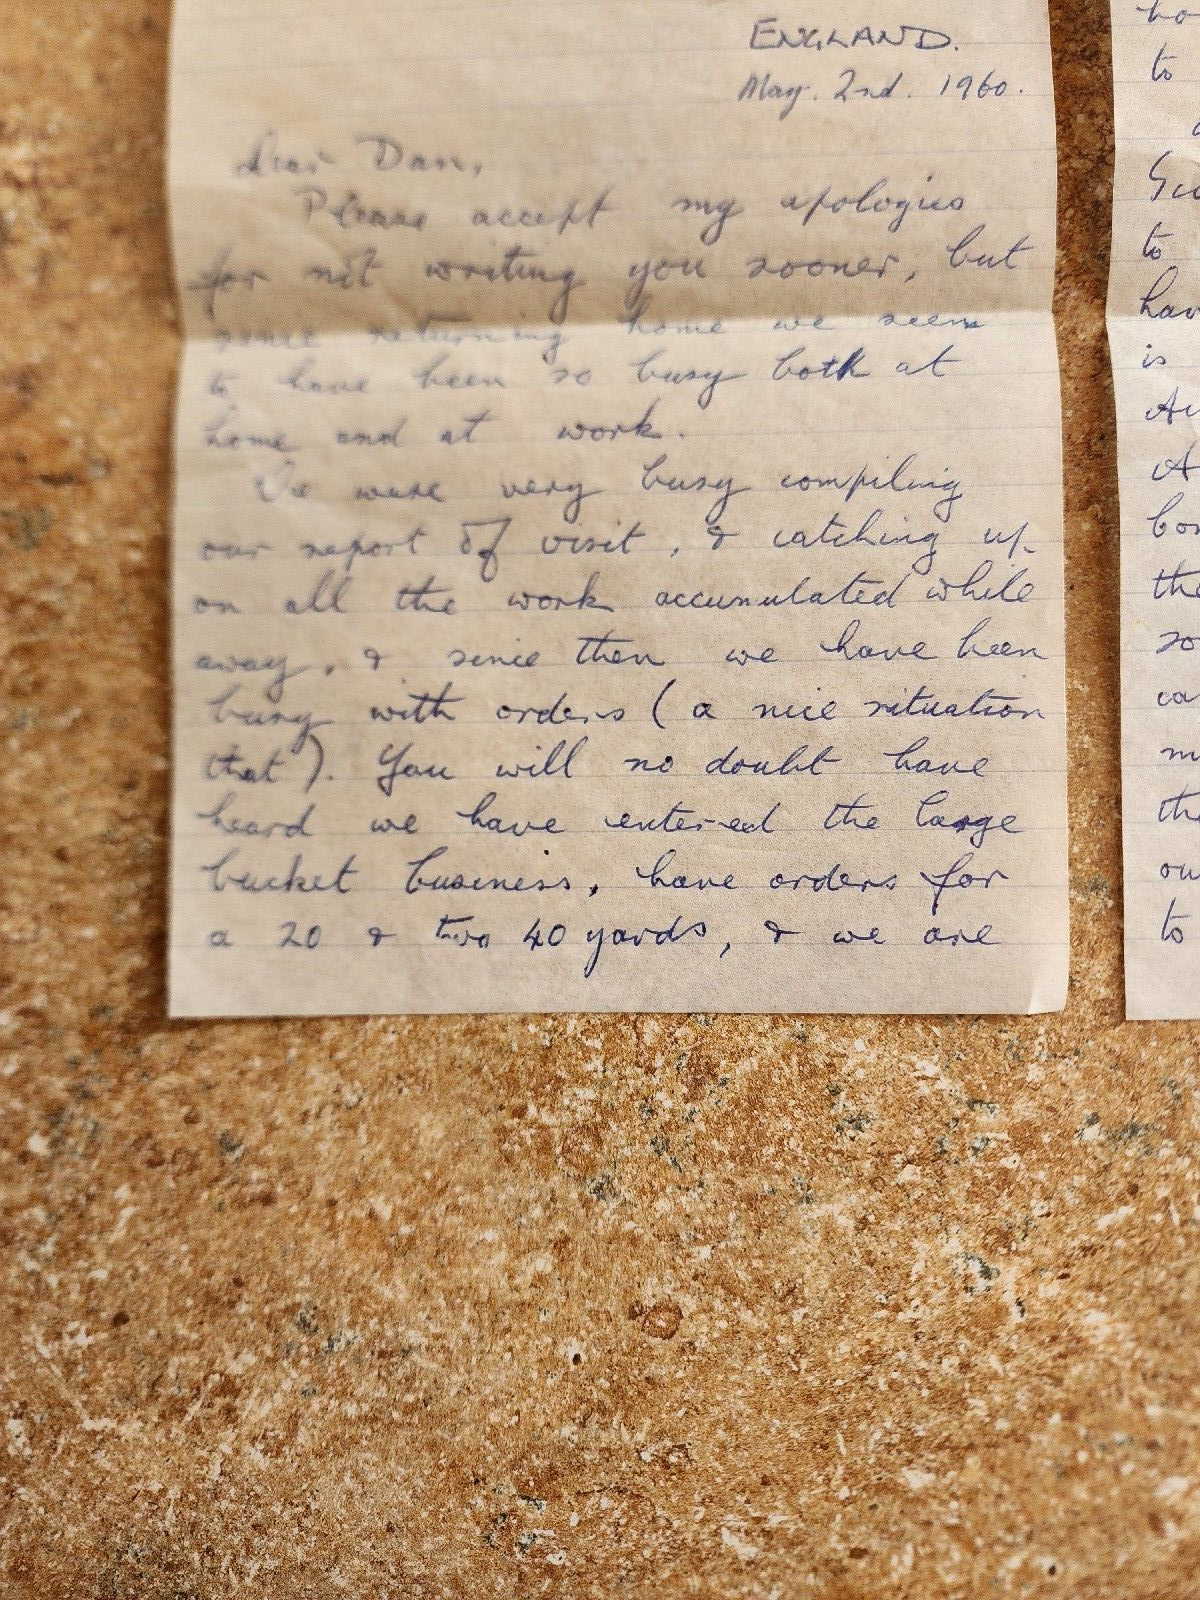 ENGLAND.
May. 2nd. 1960.
Dear Dan,
Please accept my apologies
for not writing you sooner, but
since returning home we seem
to have been so busy both at
home and at work.
We were very busy compiling
our report of visit, & catching up
on all the work accumulated while
away, & since then we have been
busy with orders (a nice situation
that). You will no doubt have
heard we have entered the large
bucket business, have orders for
a 20 & two 40 yards, & we are
to
to
is
the
so
the
to